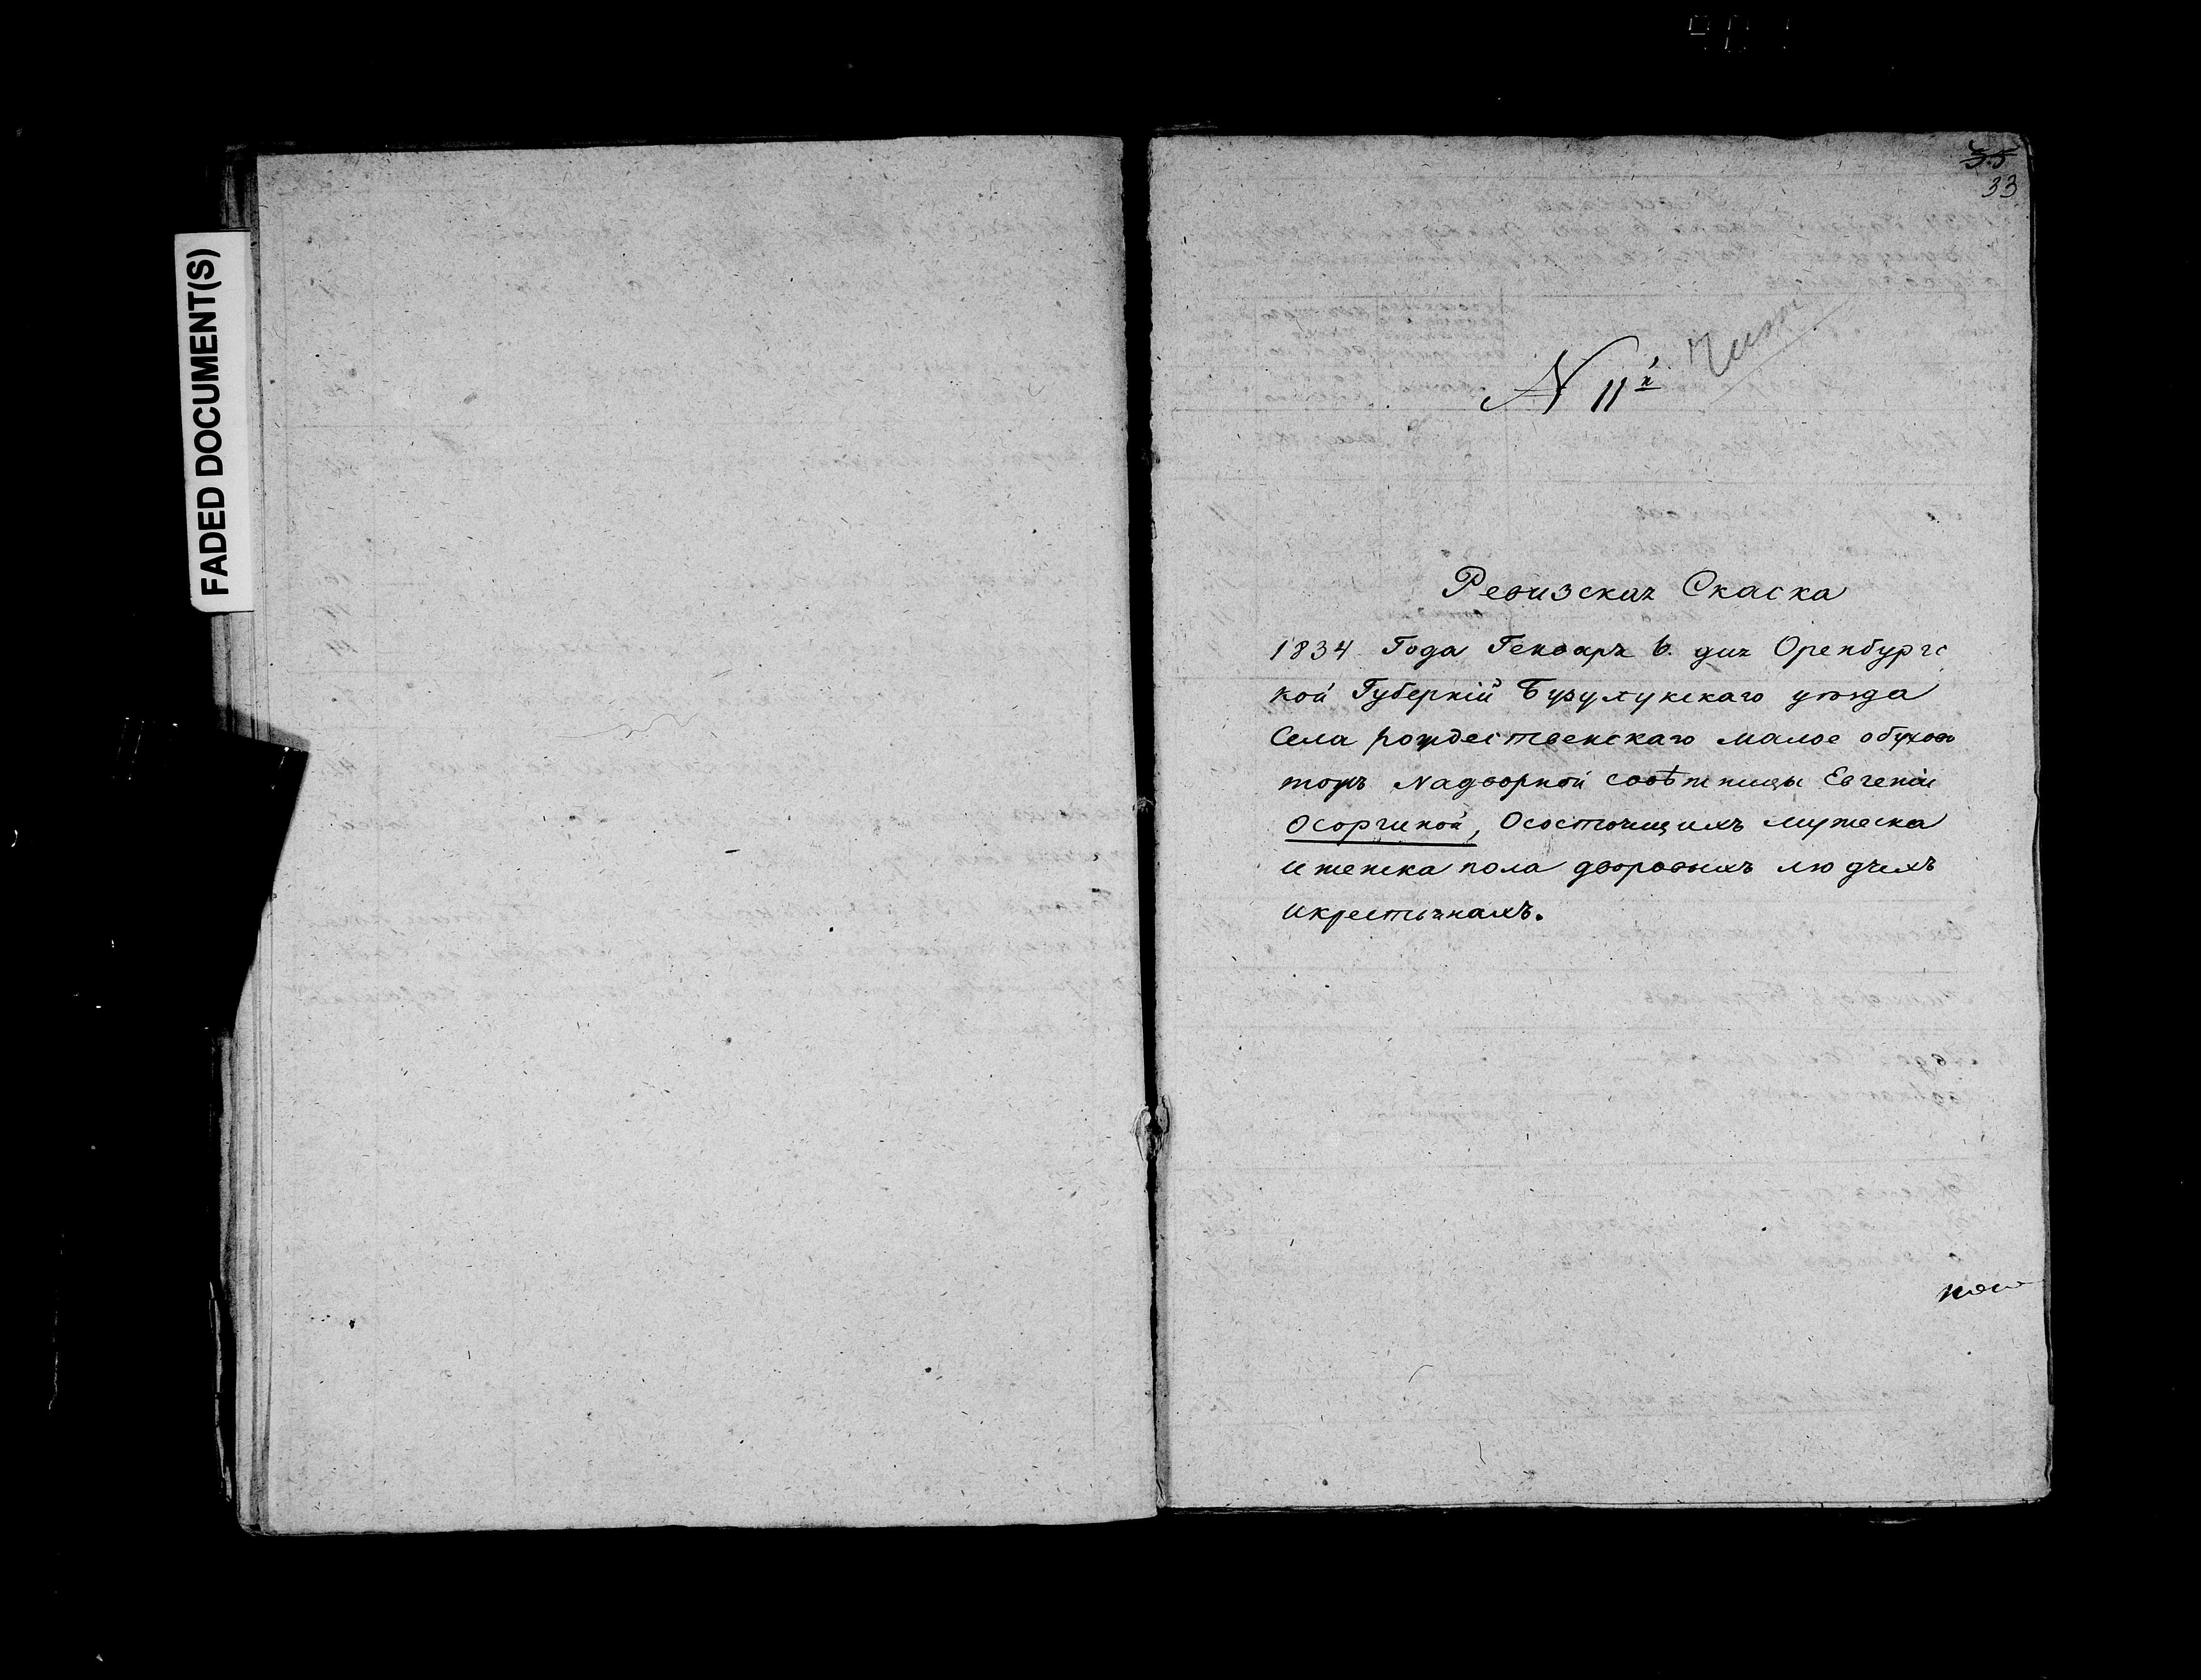 FADED DOCUMENT(S)
35
33
N 11й
Чит
Ревизская Скаска
1834 Года Генваря 6. дня Оренбургс
кой Губерній Бузулукскаго уѣзда
Села рождественскаго малое обухово
тожъ Надворной совѣтницы Евгеніи
Осоргиной, Осостоящихъ мужеска
и женска пола дворовыхъ людяхъ
икрестьянахъ.